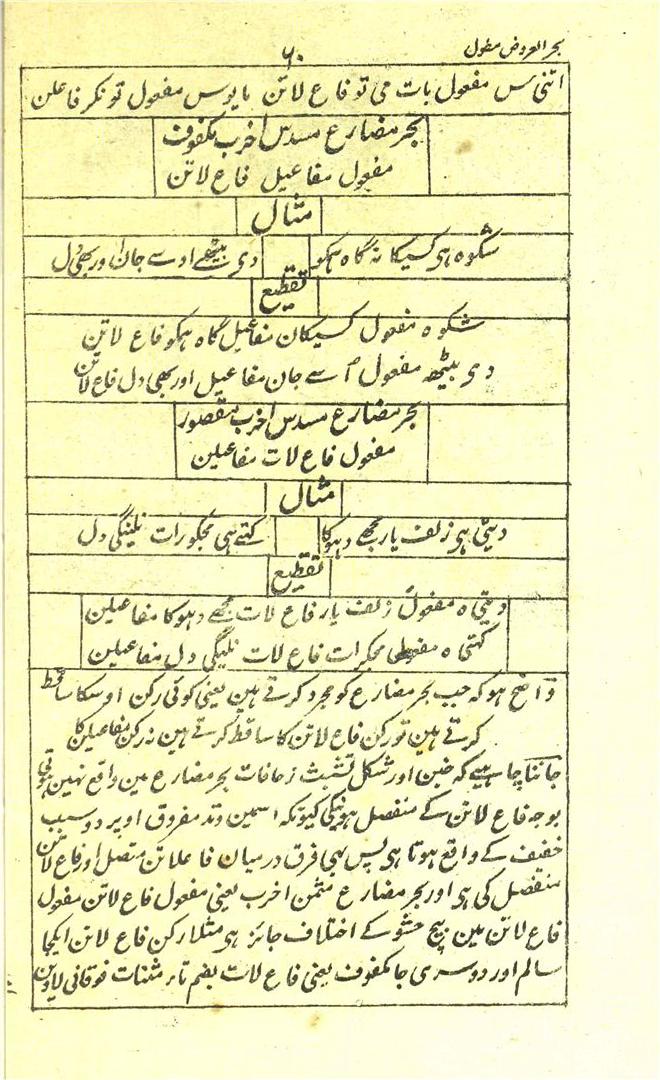 بحر العروض مفعول
۶۰
اتنی س مفعول بات می تو فاع لاتن مایوس مفعول تو نکر فاعلن
بحر مضارع مسدس اخرب مکفوف
مفعول مفاعیل فاع لاتن
مثال
شکوہ ہی کسیکا نہ گاہ ہمکو دی بیٹھے اوسے جان اور بھی دل
تقطیع
شکوہ مفعول کسیکان مفاعیل گاہ ہمکو فاع لاتن
دی بیٹھ مفعول اُسے جان مفاعیل اور بھی دل فاع لاتن
بحر مضارع مسدس اخرب مقصور
مفعول فاع لات مفاعیلن
مثال
دیتی ہی زلف یار مجھے دہوکا کہتے ہی مجکو رات نلینگی دل
تقطیع
دیتی ہ مفعول زلف یار فاع لات مجھے دہوکا مفاعیلن
کہتی ہ مفعول مجکرات فاع لات نلیگی دل مفاعیلن
واضح ہو کہ جب بحر مضارع کو مجرد کرتے ہین یعنی کوئی رکن اوسکا ساقط
کرتے ہین تو رکن فاع لاتن کا ساقط کرتے ہین نہ رکن مفاعیلن کا
جاننا چاہیے کہ خبن اور شکل تشبث زحافات بحر مضارع مین واقع نہین ہوتی
بوجہ فاع لاتن کے منفصل ہونیکی کیونکہ اسمین وتد مفروق اوپر دو سبب
خفیف کے واقع ہوتا ہی پس یہی فرق درمیان فاعلاتن متصل اور فاع لاتن
منفصل کی ہی اور بحر مضارع مثمن اخرب یعنی مفعول فاع لاتن مفعول
فاع لاتن مین بیچ حشو کے اختلاف جائز ہی مثلا رکن فاع لاتن ایکجا
سالم اور دوسری جا مکفوف یعنی فاع لات بضم تاء مثنات فوقانی لاوین